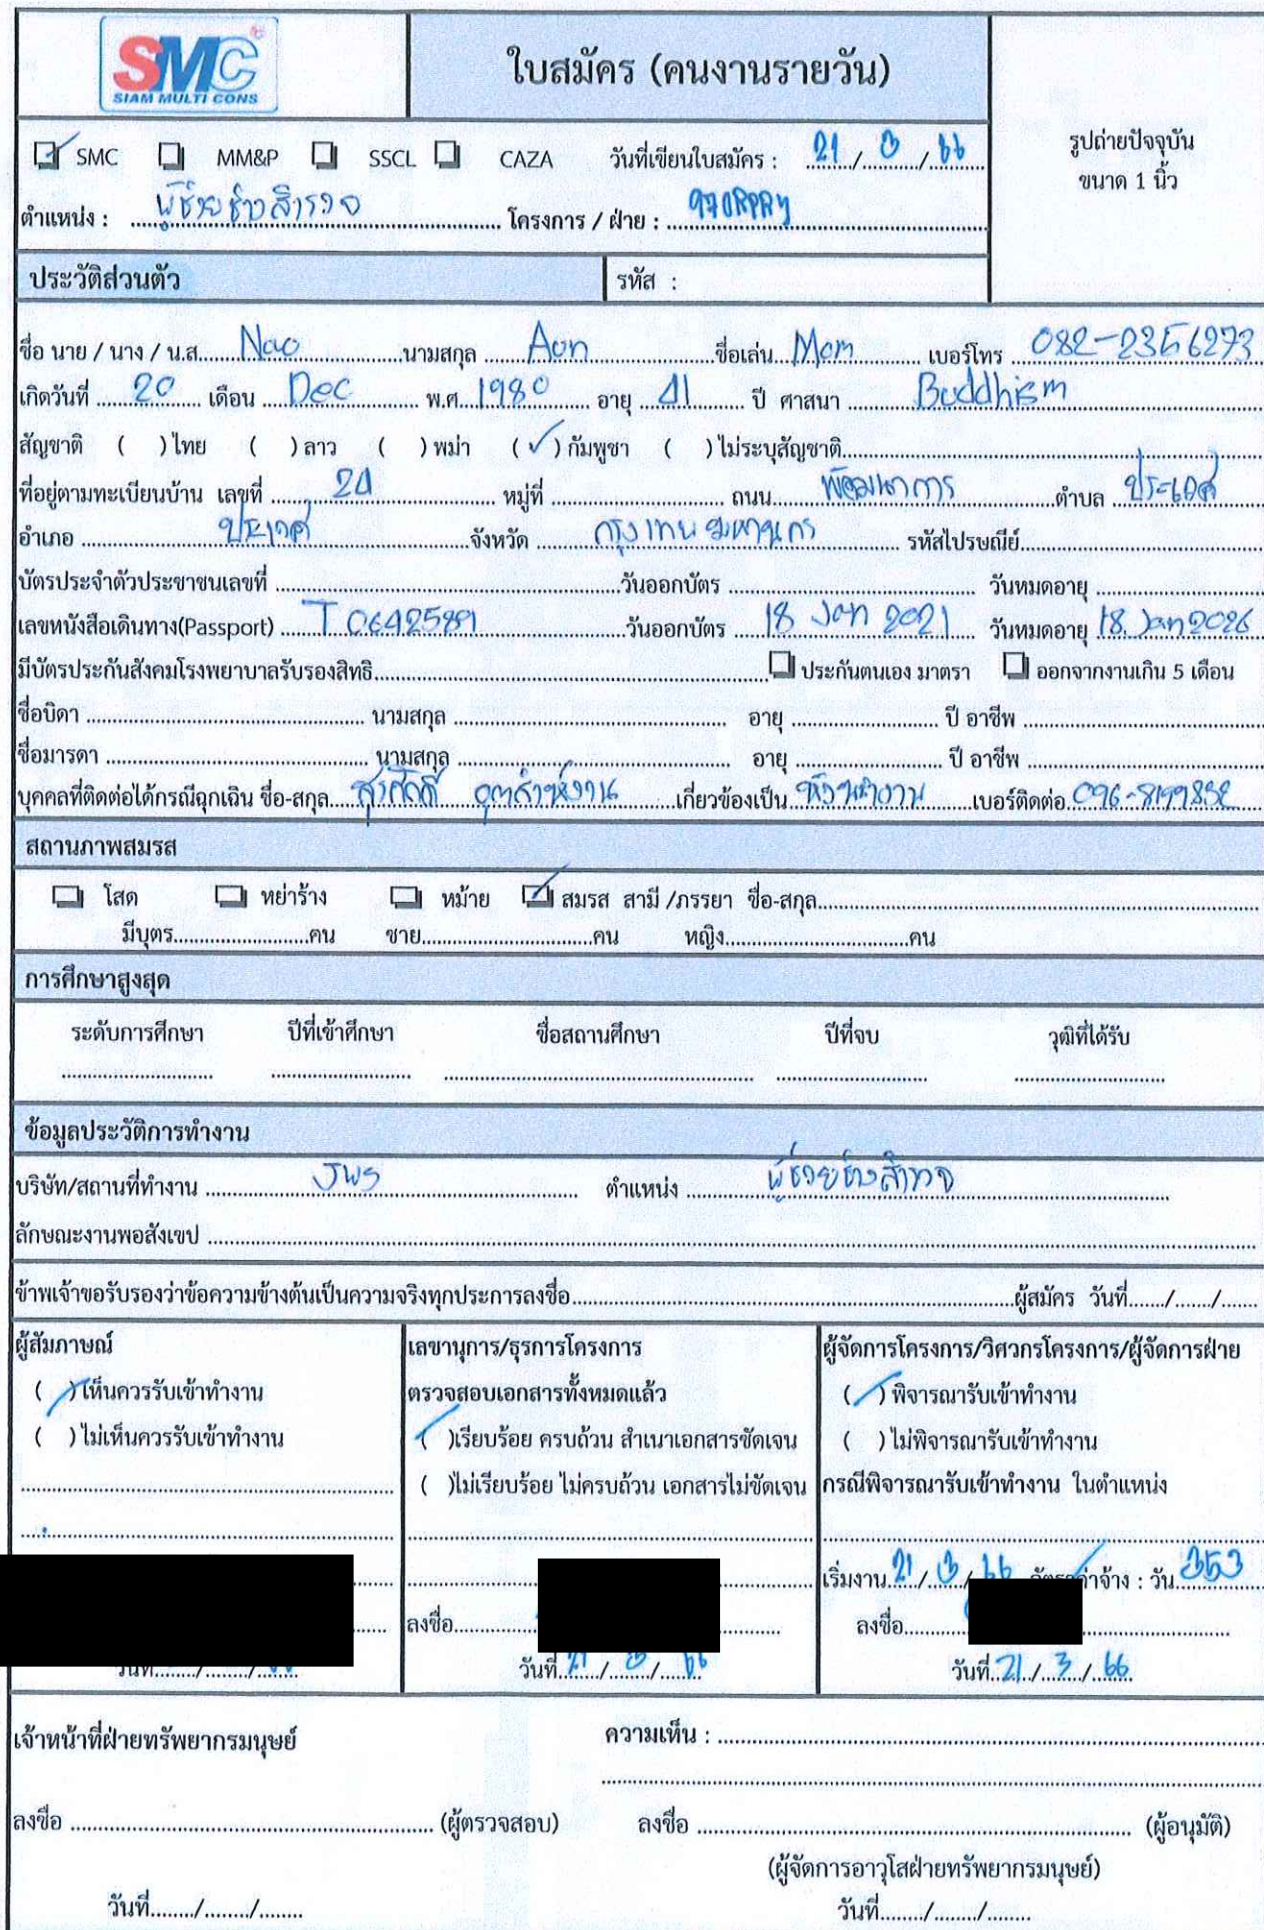 SMC
SIAM MULTI CONS
ใบสมัคร (คนงานรายวัน)
รูปถ่ายปัจจุบัน
ขนาด 1 นิ้ว
SMC MM&P SSCL CAZA วันที่เขียนใบสมัคร : 21/3/66
ตำแหน่ง : ผู้ช่วยช่างสำรวจ โครงการ / ฝ่าย :
ประวัติส่วนตัว รหัส :
ชื่อ นาย / นาง / น.ส. Nao นามสกุล Aon ชื่อเล่น Mom เบอร์โทร 082-2356273
เกิดวันที่ 20 เดือน Dec พ.ศ. 1980 อายุ 41 ปี ศาสนา Buddhism
สัญชาติ ( ) ไทย ( ) ลาว ( ) พม่า (✓) กัมพูชา ( ) ไม่ระบุสัญชาติ
ที่อยู่ตามทะเบียนบ้าน เลขที่ 24 หมู่ที่ ถนน พัฒนาการ ตำบล ประเวศ
อำเภอ ประเวศ จังหวัด กรุงเทพมหานคร รหัสไปรษณีย์
บัตรประจำตัวประชาชนเลขที่ วันออกบัตร วันหมดอายุ
เลขหนังสือเดินทาง(Passport) วันออกบัตร 18 Jan 2021 วันหมดอายุ 18 Jan 2026
มีบัตรประกันสังคมโรงพยาบาลรับรองสิทธิ ประกันตนเอง มาตรา ออกจากงานเกิน 5 เดือน
ชื่อบิดา นามสกุล อายุ ปี อาชีพ
ชื่อมารดา นามสกุล อายุ ปี อาชีพ
บุคคลที่ติดต่อได้กรณีฉุกเฉิน ชื่อ-สกุล สุรศักดิ์ เกี่ยวข้องเป็น หัวหน้างาน เบอร์ติดต่อ
สถานภาพสมรส
โสด หย่าร้าง หม้าย สมรส สามี /ภรรยา ชื่อ-สกุล
มีบุตร คน ชาย คน หญิง คน
การศึกษาสูงสุด
ระดับการศึกษา ปีที่เข้าศึกษา ชื่อสถานศึกษา ปีที่จบ วุฒิที่ได้รับ
ข้อมูลประวัติการทำงาน
บริษัท/สถานที่ทำงาน JWS ตำแหน่ง ผู้ช่วยช่างสำรวจ
ลักษณะงานพอสังเขป
ข้าพเจ้าขอรับรองว่าข้อความข้างต้นเป็นความจริงทุกประการลงชื่อ ผู้สมัคร วันที่ / /
ผู้สัมภาษณ์
(✓) เห็นควรรับเข้าทำงาน
( ) ไม่เห็นควรรับเข้าทำงาน
วันที่ / /66
เลขานุการ/ธุรการโครงการ
ตรวจสอบเอกสารทั้งหมดแล้ว
(✓)เรียบร้อย ครบถ้วน สำเนาเอกสารชัดเจน
( )ไม่เรียบร้อย ไม่ครบถ้วน เอกสารไม่ชัดเจน
ลงชื่อ
วันที่ 21/3/66
ผู้จัดการโครงการ/วิศวกรโครงการ/ผู้จัดการฝ่าย
(✓) พิจารณารับเข้าทำงาน
( ) ไม่พิจารณารับเข้าทำงาน
กรณีพิจารณารับเข้าทำงาน ในตำแหน่ง
เริ่มงาน 21/3/66 อัตราค่าจ้าง : วัน 353
ลงชื่อ
วันที่ 21/3/66
เจ้าหน้าที่ฝ่ายทรัพยากรมนุษย์ ความเห็น :
ลงชื่อ (ผู้ตรวจสอบ) ลงชื่อ (ผู้อนุมัติ)
(ผู้จัดการอาวุโสฝ่ายทรัพยากรมนุษย์)
วันที่ / / วันที่ / /